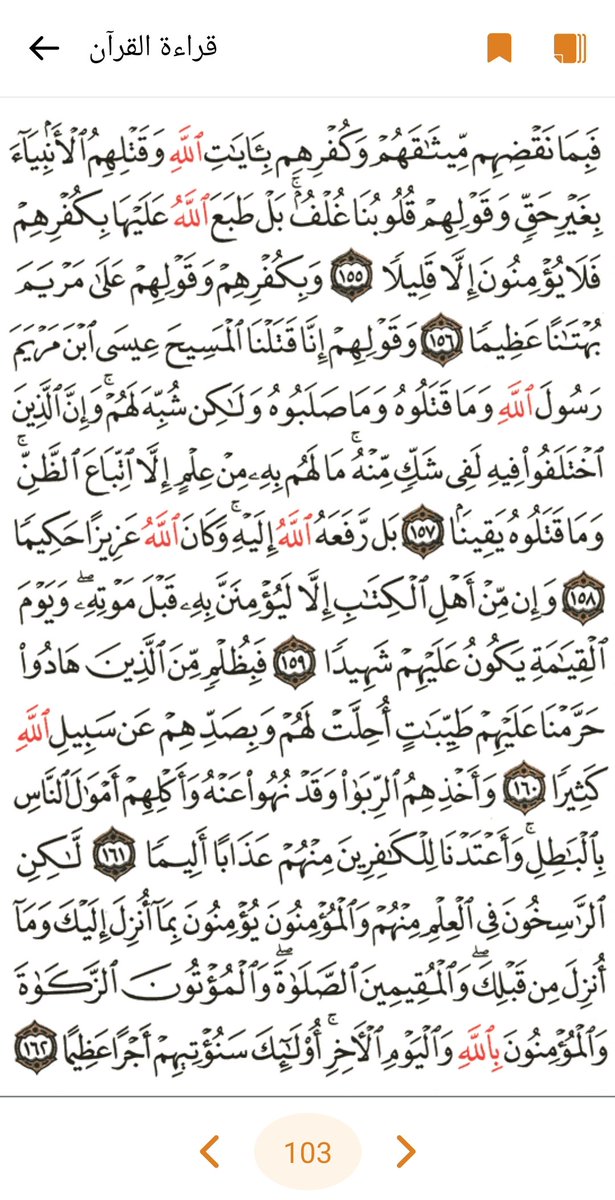 قراءة القرآن
فَبِمَا نَقْضِهِم مِّيثَٰقَهُمْ وَكُفْرِهِم بِـَٔايَٰتِ ٱللَّهِ وَقَتْلِهِمُ ٱلْأَنۢبِيَآءَ
بِغَيْرِ حَقٍّ وَقَوْلِهِمْ قُلُوبُنَا غُلْفٌۢ ۚ بَلْ طَبَعَ ٱللَّهُ عَلَيْهَا بِكُفْرِهِمْ
فَلَا يُؤْمِنُونَ إِلَّا قَلِيلًا ١٥٥ وَبِكُفْرِهِمْ وَقَوْلِهِمْ عَلَىٰ مَرْيَمَ
بُهْتَٰنًا عَظِيمًا ١٥٦ وَقَوْلِهِمْ إِنَّا قَتَلْنَا ٱلْمَسِيحَ عِيسَى ٱبْنَ مَرْيَمَ
رَسُولَ ٱللَّهِ وَمَا قَتَلُوهُ وَمَا صَلَبُوهُ وَلَٰكِن شُبِّهَ لَهُمْ ۚ وَإِنَّ ٱلَّذِينَ
ٱخْتَلَفُوا۟ فِيهِ لَفِى شَكٍّ مِّنْهُ ۚ مَا لَهُم بِهِۦ مِنْ عِلْمٍ إِلَّا ٱتِّبَاعَ ٱلظَّنِّ ۚ
وَمَا قَتَلُوهُ يَقِينًۢا ١٥٧ بَل رَّفَعَهُ ٱللَّهُ إِلَيْهِ ۚ وَكَانَ ٱللَّهُ عَزِيزًا حَكِيمًا
١٥٨ وَإِن مِّنْ أَهْلِ ٱلْكِتَٰبِ إِلَّا لَيُؤْمِنَنَّ بِهِۦ قَبْلَ مَوْتِهِۦ ۖ وَيَوْمَ
ٱلْقِيَٰمَةِ يَكُونُ عَلَيْهِمْ شَهِيدًا ١٥٩ فَبِظُلْمٍ مِّنَ ٱلَّذِينَ هَادُوا۟
حَرَّمْنَا عَلَيْهِمْ طَيِّبَٰتٍ أُحِلَّتْ لَهُمْ وَبِصَدِّهِمْ عَن سَبِيلِ ٱللَّهِ
كَثِيرًا ١٦٠ وَأَخْذِهِمُ ٱلرِّبَوٰا۟ وَقَدْ نُهُوا۟ عَنْهُ وَأَكْلِهِمْ أَمْوَٰلَ ٱلنَّاسِ
بِٱلْبَٰطِلِ ۚ وَأَعْتَدْنَا لِلْكَٰفِرِينَ مِنْهُمْ عَذَابًا أَلِيمًا ١٦١ لَّٰكِنِ
ٱلرَّٰسِخُونَ فِى ٱلْعِلْمِ مِنْهُمْ وَٱلْمُؤْمِنُونَ يُؤْمِنُونَ بِمَآ أُنزِلَ إِلَيْكَ وَمَآ
أُنزِلَ مِن قَبْلِكَ ۖ وَٱلْمُقِيمِينَ ٱلصَّلَوٰةَ ۖ وَٱلْمُؤْتُونَ ٱلزَّكَوٰةَ
وَٱلْمُؤْمِنُونَ بِٱللَّهِ وَٱلْيَوْمِ ٱلْـَٔاخِرِ ۚ أُو۟لَٰٓئِكَ سَنُؤْتِيهِمْ أَجْرًا عَظِيمًا ١٦٢
103